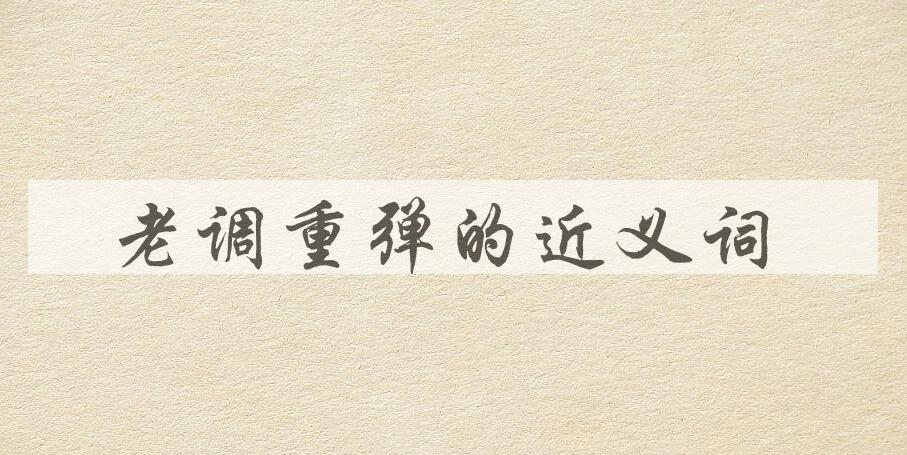 老调重弹的近义词